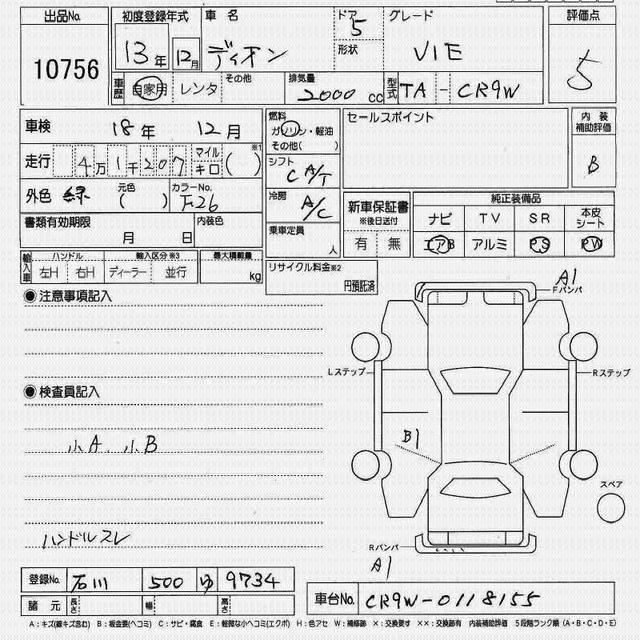 出品No. 10756
初度登録年式 13年 12月
車名 ディオン
ドア 5
形状
グレード VIE
評価点 5
車歴 自家用 レンタ その他
排気量 2000cc
型式 TA - CR9W
車検 18年 12月
走行 4万1千207 マイル キロ ( ) ※1
外色 緑 元色( ) カラーNo. F26
書類有効期限 月 日
内装色
燃料 ガソリン・軽油 その他( )
シフト C A/T
冷房 A/C
乗定員 人
リサイクル料金※2 円預託済
セールスポイント
内装補助評価 B
新車保証書 ※後日送付 有 無
純正装備品
ナビ TV SR 本皮シート
エアB アルミ PS PW
輸入車 ハンドル 左H 右H
輸入区分※3 ディーラー 並行
最大積載量 kg
●注意事項記入
●検査員記入
小A 小B
ハンドルスレ
A1
Fバンパ
Lステップ
Rステップ
B1
スペア
Rバンパ
A1
登録No. 石川 500 ゆ 9734
諸元 長さ 幅 高さ
車台No. CR9W-0118155
A:キズ(線キズ含む) B:板金要(ヘコミ) C:サビ・腐食 E:軽微な小ヘコミ(エクボ) H:色アセ W:補修跡 ×:交換要す ××:交換跡有 内装補助評価 5段階ランク順(A・B・C・D・E)